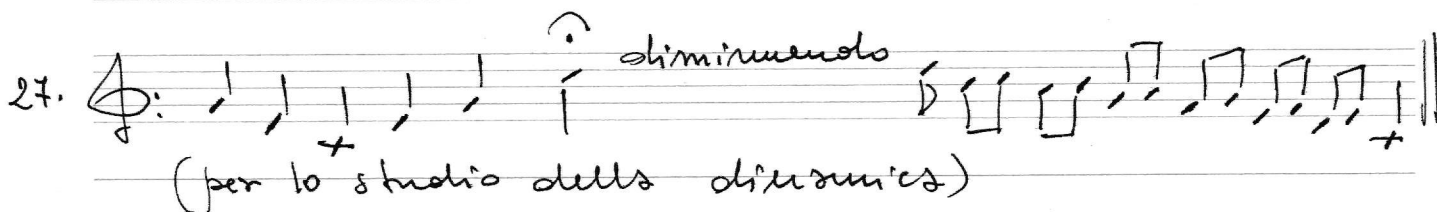 27. diminuendo
(per lo studio della dinamica)